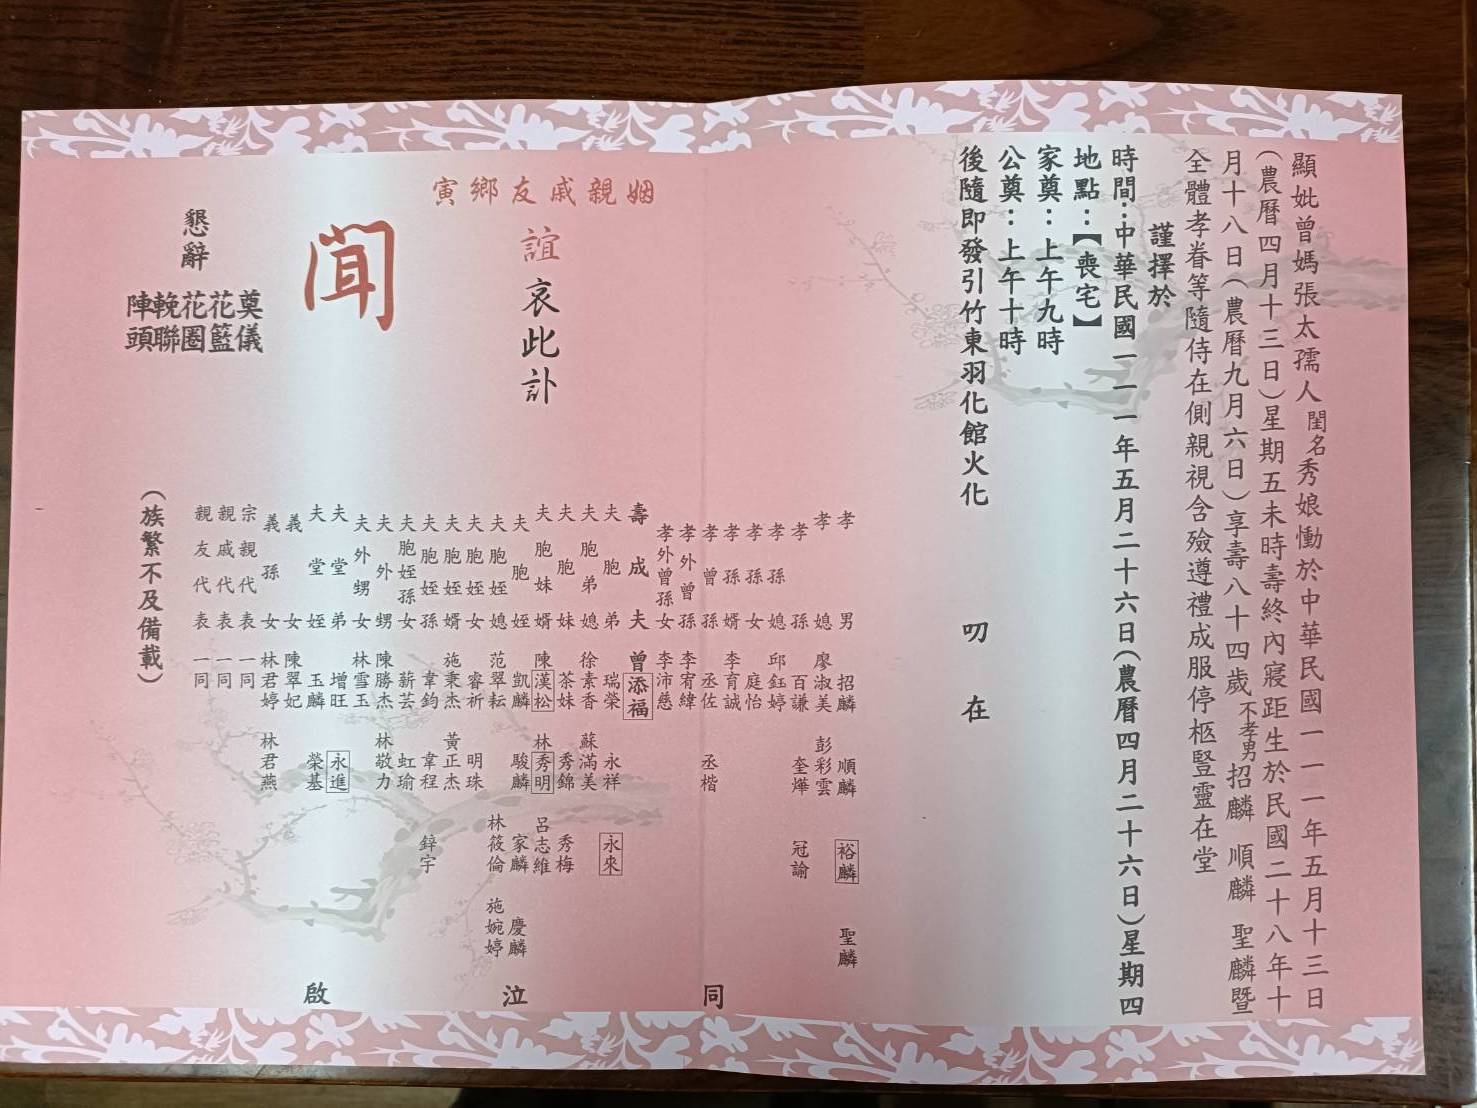 顯妣曾媽張太孺人閨名秀娘慟於中華民國一一一年五月十三日
(農曆四月十三日)星期五未時壽終內寢距生於民國二十八年十
月十八日(農曆九月六日)享壽八十四歲不孝男招麟 順麟 聖麟暨
全體孝眷等隨侍在側親視含殮遵禮成服停柩豎靈在堂
謹擇於
時間:中華民國一一一年五月二十六日(農曆四月二十六日)星期四
地點:【喪宅】
家奠:上午九時
公奠:上午十時
後隨即發引竹東羽化館火化 叨 在
孝男 招麟 順麟 裕麟 聖麟
孝媳 廖淑美 彭彩雲
孝孫 百謙 奎燁 冠諭
孝孫媳 邱鈺婷
孝孫女 庭怡
孝孫婿 李育誠
孝曾孫 丞佐 丞楷
孝外曾孫 李宥緯
孝外曾孫女 李沛慈
壽成夫 曾添福
夫胞弟 瑞榮 永祥 永來
夫胞弟媳 徐素香 蘇滿美
夫胞妹 茶妹 秀錦 秀梅
夫胞妹婿 陳漢松 林秀明 呂志維
夫胞姪 凱麟 駿麟 家麟 慶麟
夫胞姪媳 范翠耘 林筱倫 施婉婷
夫胞姪女 睿祈 明珠
夫胞姪婿 施秉杰 黃正杰
夫胞姪孫 韋鈞 韋程 鋅宇
夫胞姪孫女 薪芸 虹瑜
夫外甥 陳勝杰 林敬力
夫外甥女 林雪玉
夫堂弟 增旺 永進
夫堂姪 玉麟 榮基
義女 陳翠妃
義孫女 林君婷 林君燕
宗親代表 一同
親戚代表 一同
親友代表 一同
(族繁不及備載)
同 泣 啟
姻親戚友鄉寅
誼哀此訃
聞
懇辭
奠儀
花籃
花圈
輓聯
陣頭